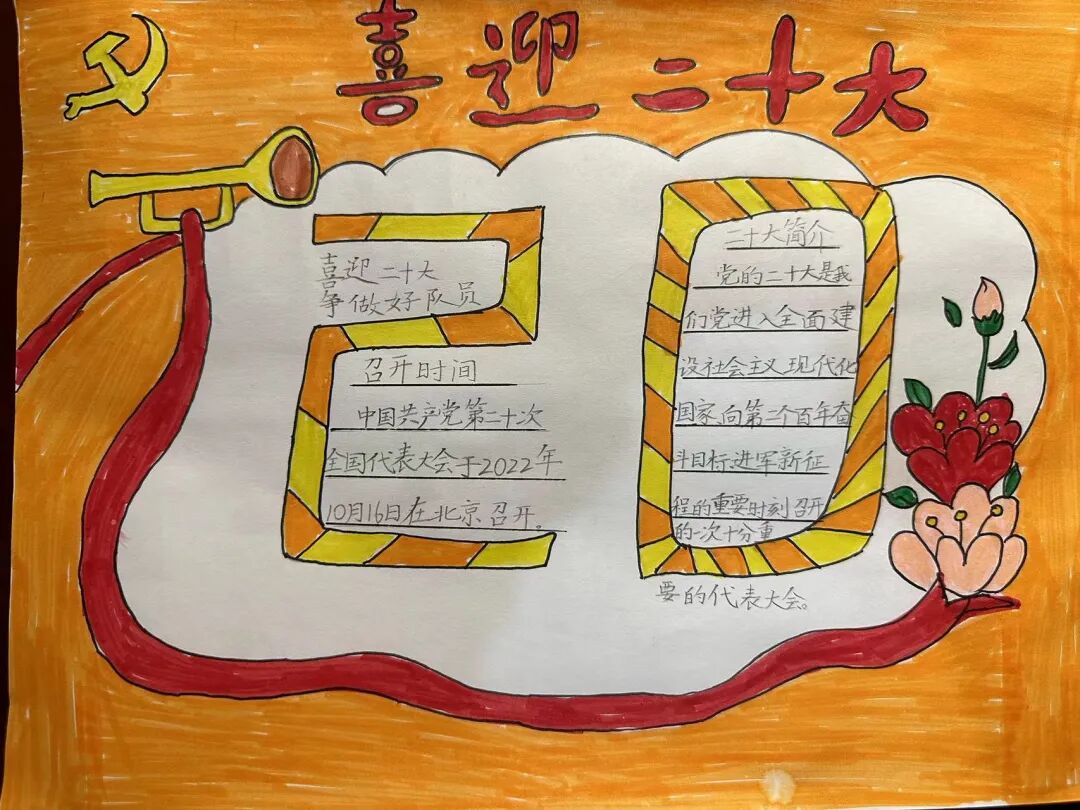 喜迎二十大
喜迎二十大
争做好队员
召开时间
中国共产党第二十次
全国代表大会于2022年
10月16日在北京召开。
二十大简介
党的二十大是我
们党进入全面建
设社会主义现代化
国家,向第二个百年奋
斗目标进军新征
程的重要时刻召开
的一次十分重
要的代表大会。